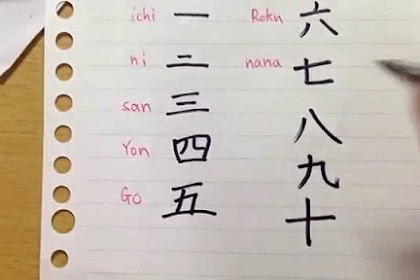 ichi 一 Roku 六
ni 二 nana 七
san 三 八
Yon 四 九
Go 五 十